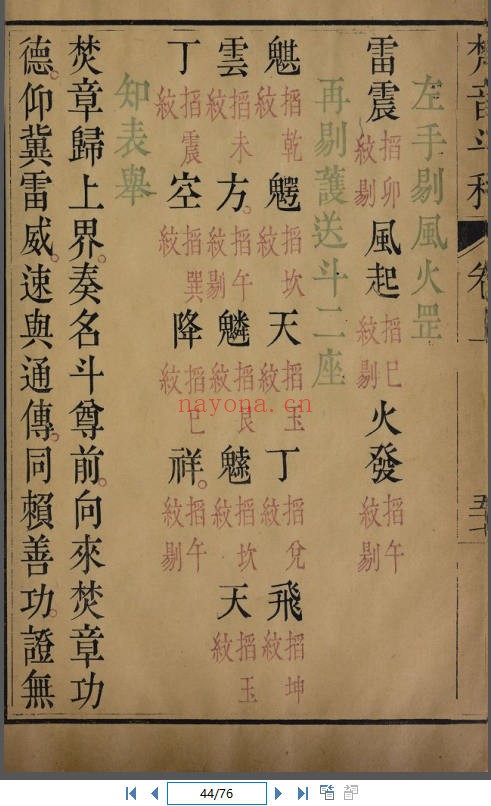 梵音斗科 卷
左手剔風火罡
雷震掐卯紋剔風起掐巳紋剔火發掐午紋剔
再剔護送斗二座
掐乾紋 掐坎紋天掐玉紋丁掐兌紋飛掐坤紋
雲掐未紋方。掐午紋剔 掐艮紋 掐坎紋天掐玉紋
丁掐震紋空掐巽紋降掐巳紋祥。掐午紋剔
知表舉
焚章歸上界。奏名斗尊前。向來焚章功
德。仰冀雷威。速與通傳。同賴善功。證無
nayona.cn
44/76